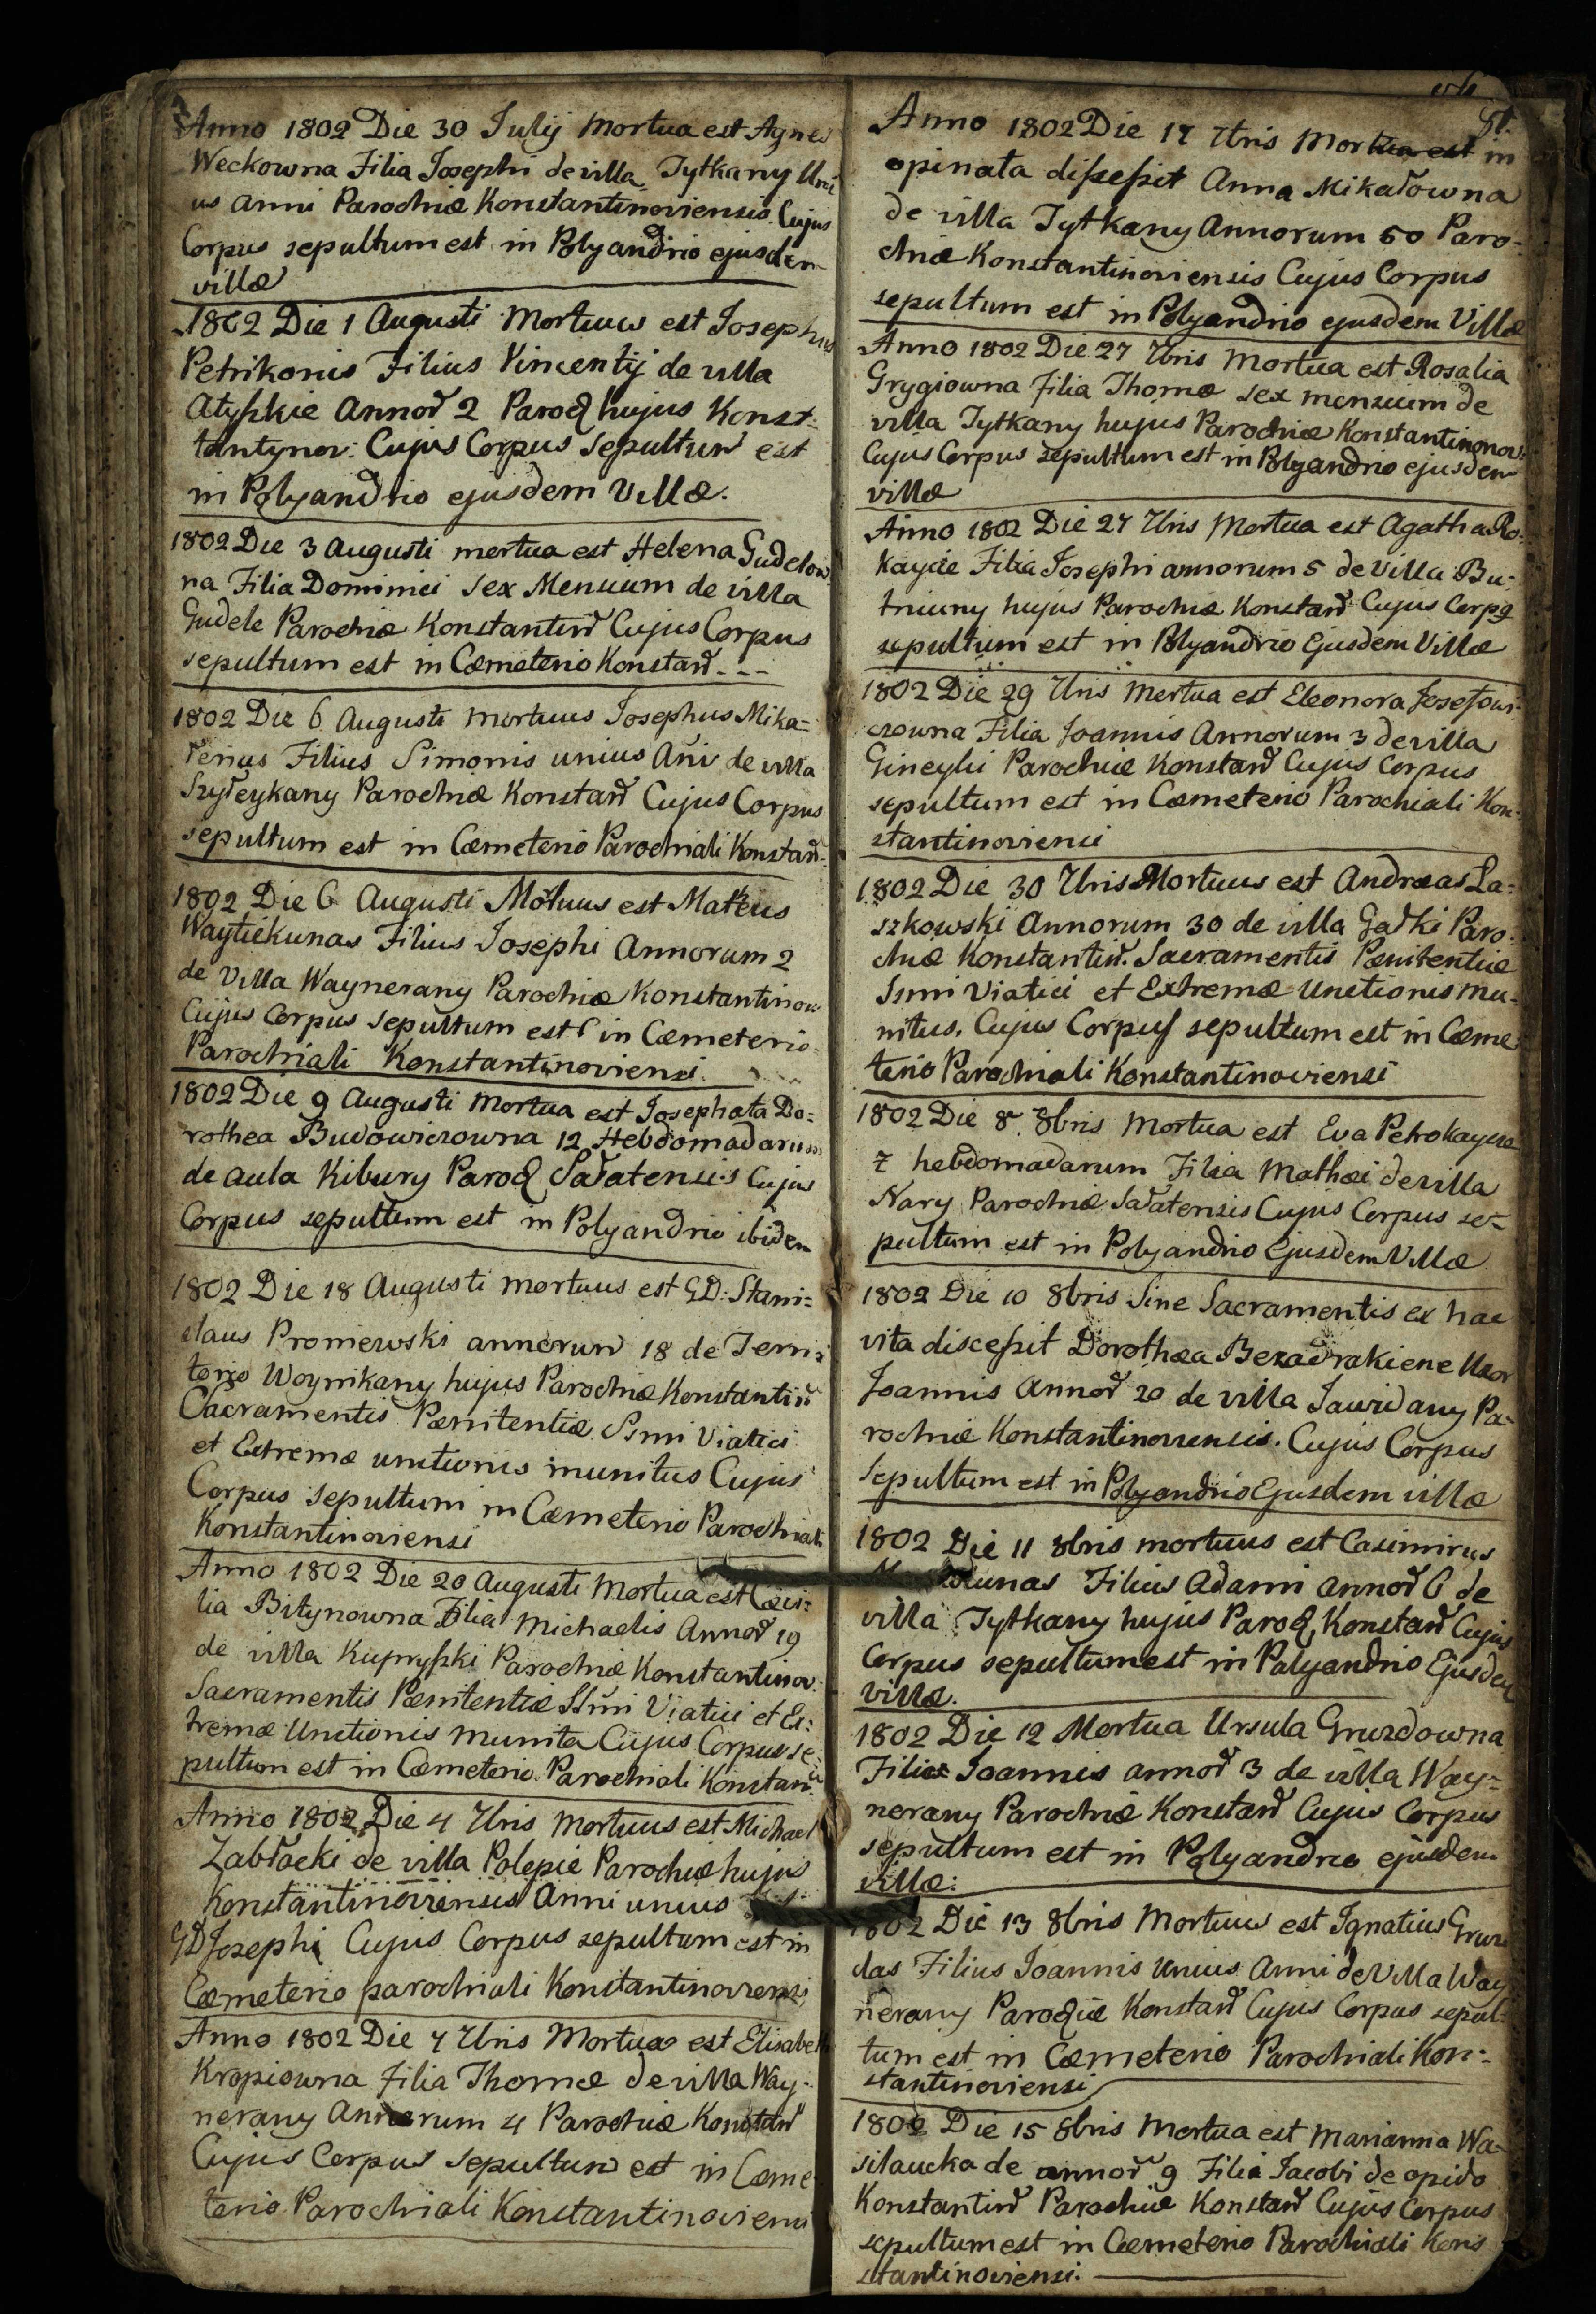 Anno 1802 Die 30 Julij Mortua est Agnes
Weckowna Filia Josephi de villa Tytkany Uni
us Anni Parochiæ Konstantinoviensis Cujus
Corpus sepultum est in Polyandrio ejusdem
villæ
1802 Die 1 Augusti Mortuus est Josephus
Petrikonis Filius Vincentij de villa
Atyszkie Annor̃ 2 Paroq hujus Konst:
tantynov: Cujus Corpus sepultum̃ est
in Polyandrio ejusdem Villæ.
1802 Die 3 Augusti mortua est Helena Gudelow
na Filia Dominici sex Mensium de villa
Gudele Parochiæ Konstantin̄ Cujus Corpus
sepultum est in Cæmeterio Konstan̄ - - -
1802 Die 6 Augusti mortuus Josephus Mika=
łenas Filius Simonis unius An̄i de villa
Szyłeykany Parochiæ Konstan̄ Cujus Corpus
sepultum est in Cæmeterio Parochiali Konstan̄
1802 Die 6 Augusti Mortuus est Mateus
Waytiekunas Filius Josephi Annorum 2
de Villa Waynerany Parochiæ Konstantinow
Cujus Corpus sepultum est in Cæmeterio
Parochiali Konstantinoviensi
1802 Die 9 Augusti Mortua est Josephata Do=
rothea Butowiczowna 12 Hebdomadarum
de aula Kibury Paroq Sałatensis Cujus
Corpus sepultum est in Polyandrio ibidem
1802 Die 18 Augusti mortuus est GD: Stani=
slaus Proniewski annorum̃ 18 de Terri=
torio Woynikany hujus Parochiæ Konstantin̄
Sacramentis Pænitentiæ S̄smi Viatici
et Extremæ unctionis munitus Cujus
Corpus sepultum in Cæmeterio Parochiali
Konstantinoviensi
Anno 1802 Die 20 Augusti Mortua est Cæci=
lia Bitynowna Filia Michaelis Annor̃ 19
de villa Kupryszki Parochiæ Konstantinov:
Sacramentis Pænitentiæ Ss̄mi Viatici et Ex:
tremæ Unctionis munita Cujus Corpus se=
pultum est in Cæmeterio Parochiali Konstan̄
Anno 1802 Die 4 7bris Mortuus est Michael
Zabłocki de villa Polepie Parochiæ hujus
Konstantinoviensis Anni unius
GD Josephi Cujus Corpus sepultum est in
Cæmeterio parochiali Konstantinoviensi
Anno 1802 Die 7 7bris Mortua est Elisabeth
Kropiowna Filia Thomæ de villa Way-
nerany Annorum 4 Parochiæ Konstan̄
Cujus Corpus sepultum̃ est in Cæme
terio Parochiali Konstantinoviensi
51.
Anno 1802 Die 17 7bris Mortua est in
opinata discessit Anna Mikałowna
de villa Tytkany Annorum 50 Paro-
chiæ Konstantinoviensis Cujus Corpus
sepultum est in Polyandrio ejusdem Villæ
Anno 1802 Die 27 7bris Mortua est Rosalia
Grygiowna Filia Thomæ sex mensium de
villa Tytkany hujus Parochiæ Konstantinonov:
Cujus Corpus sepultum est in Polyandrio ejusdem
villæ
Anno 1802 Die 27 7bris Mortua est Agatha Ro-
kayćie Filia Josephi annorum 5 de Villa Bu-
tniuny hujus Parochiæ Konstan̄ Cujus Corpq
sepultum est in Polyandrio Ejusdem Villæ
1802 Die 29 7bris Mortua est Eleonora Josefowi-
czowna Filia Joannis Annorum 3 de villa
Gineyki Parochiæ Konstan̄ Cujus Corpus
sepultum est in Cæmeterio Parochiali Kon-
stantinoviensi
1802 Die 30 7bris Mortuus est Andreas La=
szkowski Annorum 30 de villa Gałki Paro-
chiæ Konstantin̄. Sacramentis Pænitentiæ
Ssmi Viatici et Extremæ Unctionis mu-
nitus. Cujus Corpus sepultum est in Cæme
terio Parochiali Konstantinoviensi
1802 Die 8 8bris Mortua est Eva Petrokayća
7 hebdomadarum Filia Mathæi de villa
Nary Parochiæ Sałatensis Cujus Corpus se-
pultum est in Polyandrio Ejusdem Villæ
1802 Die 10 8bris Sine Sacramentis ex hac
vita discessit Dorothæa Bezadrakiene Uxor
Joannis Annor̃ 20 de villa Jauridany Pa-
rochiæ Konstantinoviensis. Cujus Corpus
sepultum est in Polyandrio Ejusdem villæ
1802 Die 11 8bris mortuus est Casimirus
Filius Adami annor̃ 6 de
villa Tytkany hujus Paroq Konstan̄ Cujus
Corpus sepultum est in Polyandrio Ejusdem
Villæ.
1802 Die 12 Mortua Ursula Gruzdowna
Filia Joannis annor̃ 3 de villa Way=
nerany Parochiæ Konstan̄ Cujus Corpus
sepultum est in Polyandrio ejusdem
villæ:
1802 Die 13 8bris Mortuus est Ignatius Gruz
das Filius Joannis Unius Anni de Villa Way
nerany Paroqiæ Konstan̄ Cujus Corpus sepul-
tum est in Cæmeterio Parochiali Kon-
stantinoviensi
1802 Die 15 8bris Mortua est Marianna Wa-
silaucka de annor̃ 9 Filia Jacobi de opido
Konstantin̄ Parochiæ Konstan̄ Cujus Corpus
sepultum est in Cæmeterio Parochiali Kons
stantinoviensi.